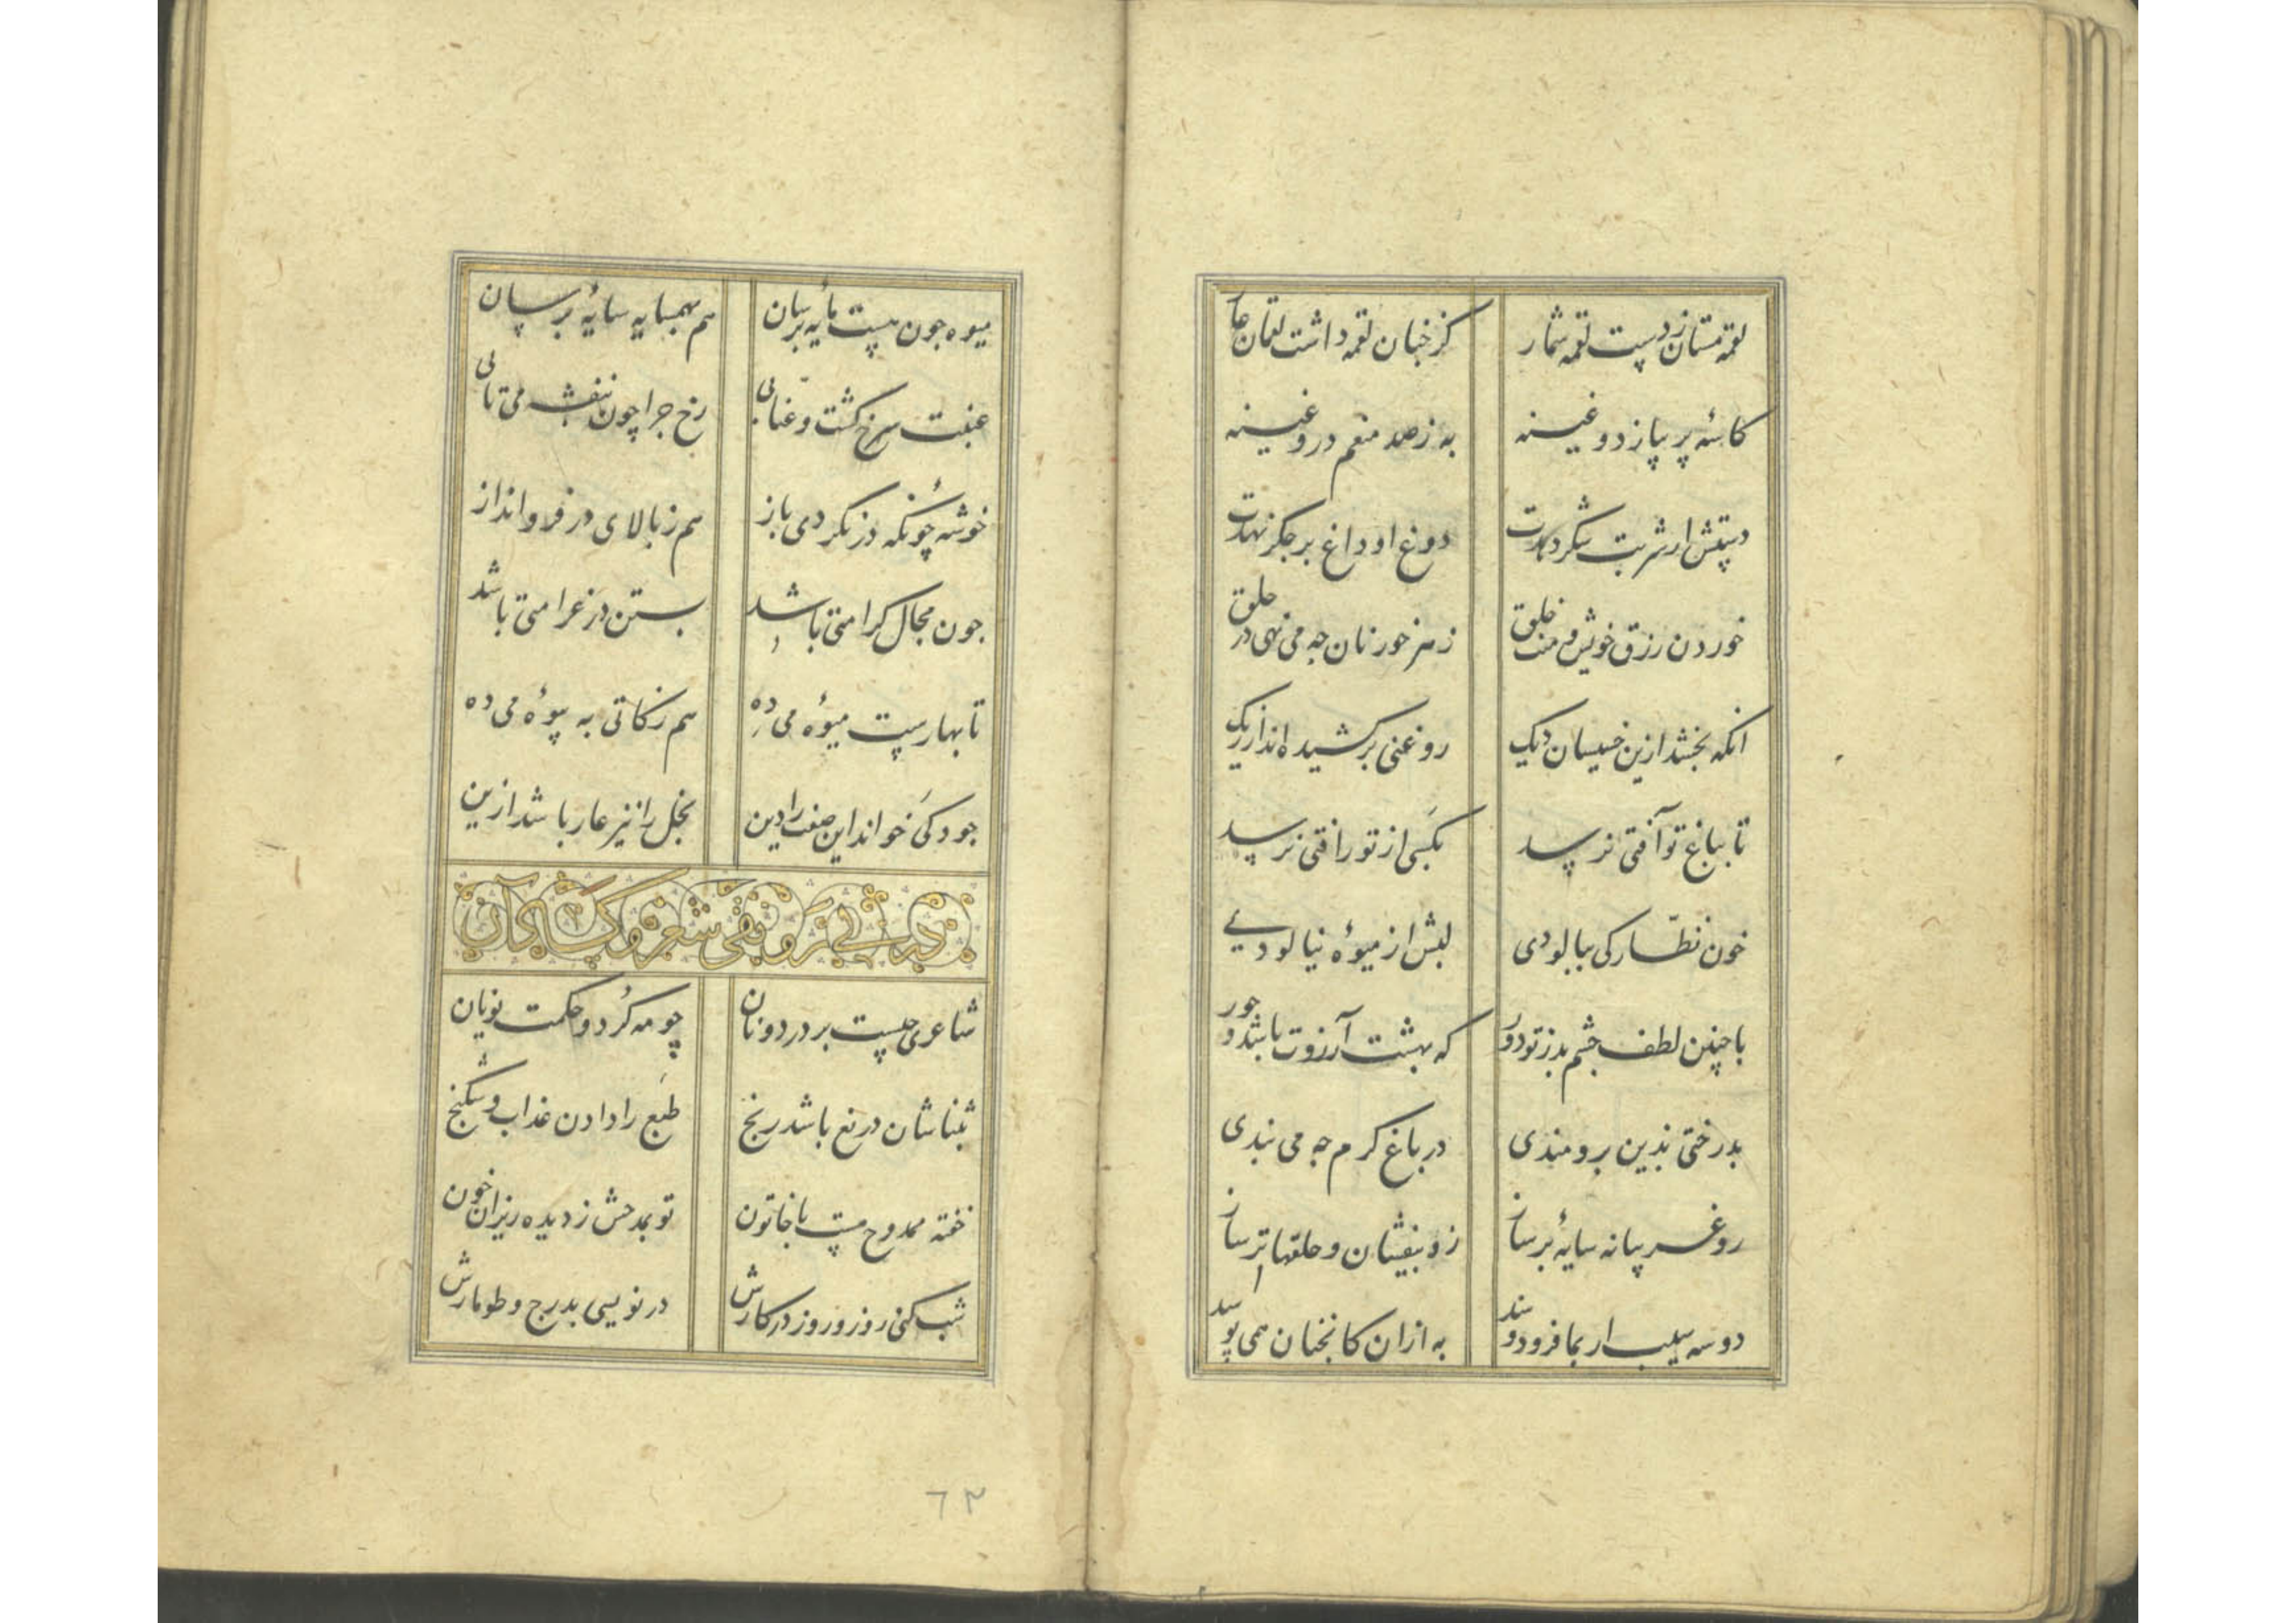 لقمه مستان ز دست لقمه شمار کز خبان لقمه داشت لقمان عار
کاسهٔ پر پیاز دوغینه به ز صد منعم دروغینه
دستش ار شربت شکر دهدت دوغ او داغ بر جکر نهدت
خوردن رزق خویش و منت خلق زهر خور نان جه می نهی در حلق
انکه بخشد ازین خسیسان دیک روغنی بر کشیده اند از ریک
تا بباغ تو آفتی نرسد بکسی از تو رافتی نرسد
خون نظارکی ببالودی لبش از میوهٔ نیالودی
با چنین لطف جشم بد ز تو دور که بهشت آرزوت باشد و حور
بدرختی بدین برومندی در باغ کرم جه می بندی
رو غریبانه سایهٔ بر ساز زو بنفشان و حلقها تر ساز
دو سه سیب ار بما فرودوسند به ازان کانجنان همی پوسند
میوه جون هست مایهٔ برسان هم بهمسایه سایهٔ برسان
عنبت سرخ کشت و عنابی رخ جرا چون بنفشه می تابی
خوشه چونکه دز نکردی باز هم ز بالای در فرو انداز
جون مجال کرامتی باشد بستن در غرامتی باشد
تا بهارست میوهٔ می ده هم زکاتی به بیوهٔ می ده
جود کی خواند این صفت را دین بخل را نیز عار باشد ازین
شاعری جیست بر در دونان چو مه کرد و حکمت یونان
بثناشان دریغ باشد رنج طبع را دادن عذاب و شکنج
خفته ممدوح مست با خاتون تو بمدحش ز دیده ریزان خون
شب کنی روز و روز در کارش در نویسی بدرج و طومارش
٦٣